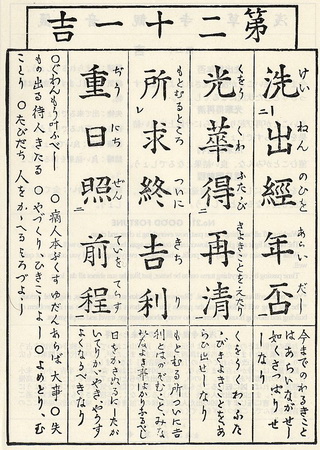 第二十一吉
洗出經年否
けい ねん のひと あらい だし
光華得再清
くをう くわ ふたび きよきことをえたり
所求終吉利
もとむるところ ついに きち り
重日照前程
ぢう にち ぜん ていを てらす
今までのわるきこと
はあらいながせし
如くさっぱりせ
しなり
くをうくわふた
たびきよきことをあ
らひ出せしなり
もとむる所ついに吉
利とはのぞむこと、みな
よき事ばかりあるべし
日をかさぬるにしたが
いてりかがやき、ゆくすゑ
よくなるべきなり
○ぐわんもう叶ふべし ○病人本ぶくすゆだんあらば大事 ○失
もの出る待人きたる ○やづくり、ひきこしよし ○よめとり、む
ことり ○たびだち 人をかゝへるよろづよし